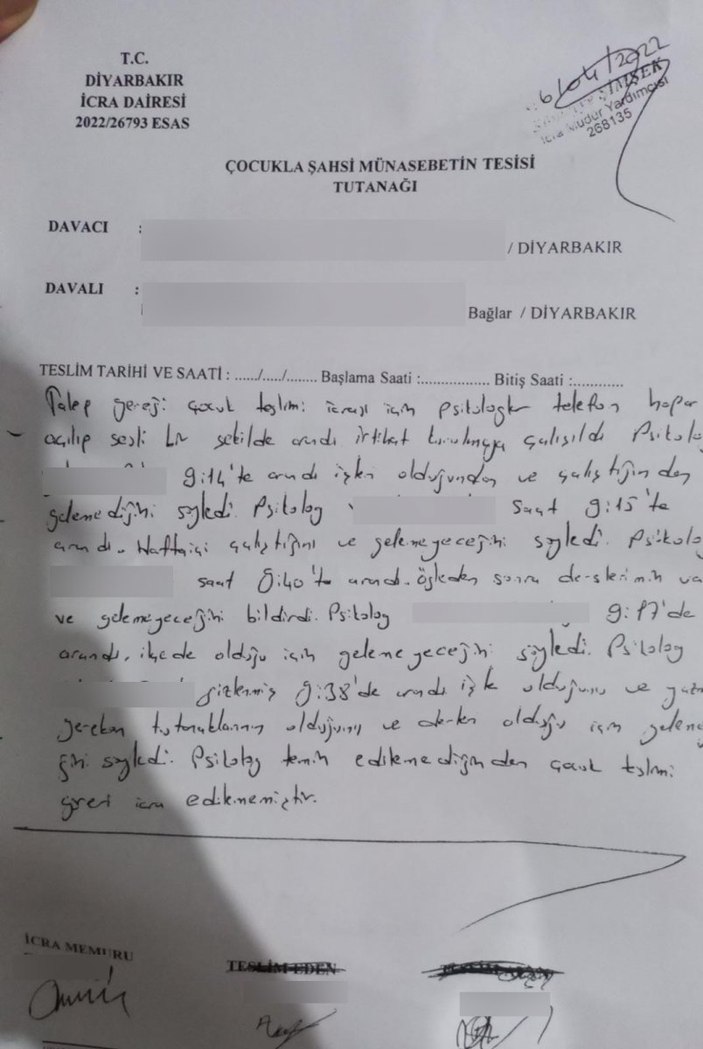 T.C.
DİYARBAKIR
İCRA DAİRESİ
2022/26793 ESAS
6/04/2022
ŞİMŞEK
İcra Müdür Yardımcısı
268135
ÇOCUKLA ŞAHSİ MÜNASEBETİN TESİSİ
TUTANAĞI
DAVACI :
/ DİYARBAKIR
DAVALI :
Bağlar / DİYARBAKIR
TESLİM TARİHİ VE SAATİ : ....../..../........ Başlama Saati :................ Bitiş Saati :............
Talep gereği çocuk teslimi icrası için psikologlar telefon hopar
açılıp sesli bir şekilde arandı irtibat kurulmaya çalışıldı Psikolo
9:14'te arandı işleri olduğundan ve çalıştığından
gelemediğini söyledi. Psikolog saat 9:15'te
arandı. Haftaiçi çalıştığını ve gelemeyeceğini söyledi. Psikolo
saat 9:40'ta arandı. öğleden sonra derslerinin va
ve gelemeyeceğini bildirdi. Psikolog 9:17'de
arandı, ilçede olduğu için gelemeyeceğini söyledi. Psikolog
9:38'de arandı işte olduğunu ve yazı
gereken tutanaklarının olduğunu ve dersler olduğu için geleme
ğini söyledi. Psikolog temin edilemediğinden çocuk teslimi
görevi icra edilememiştir.
İCRA MEMURU
TESLİM EDEN